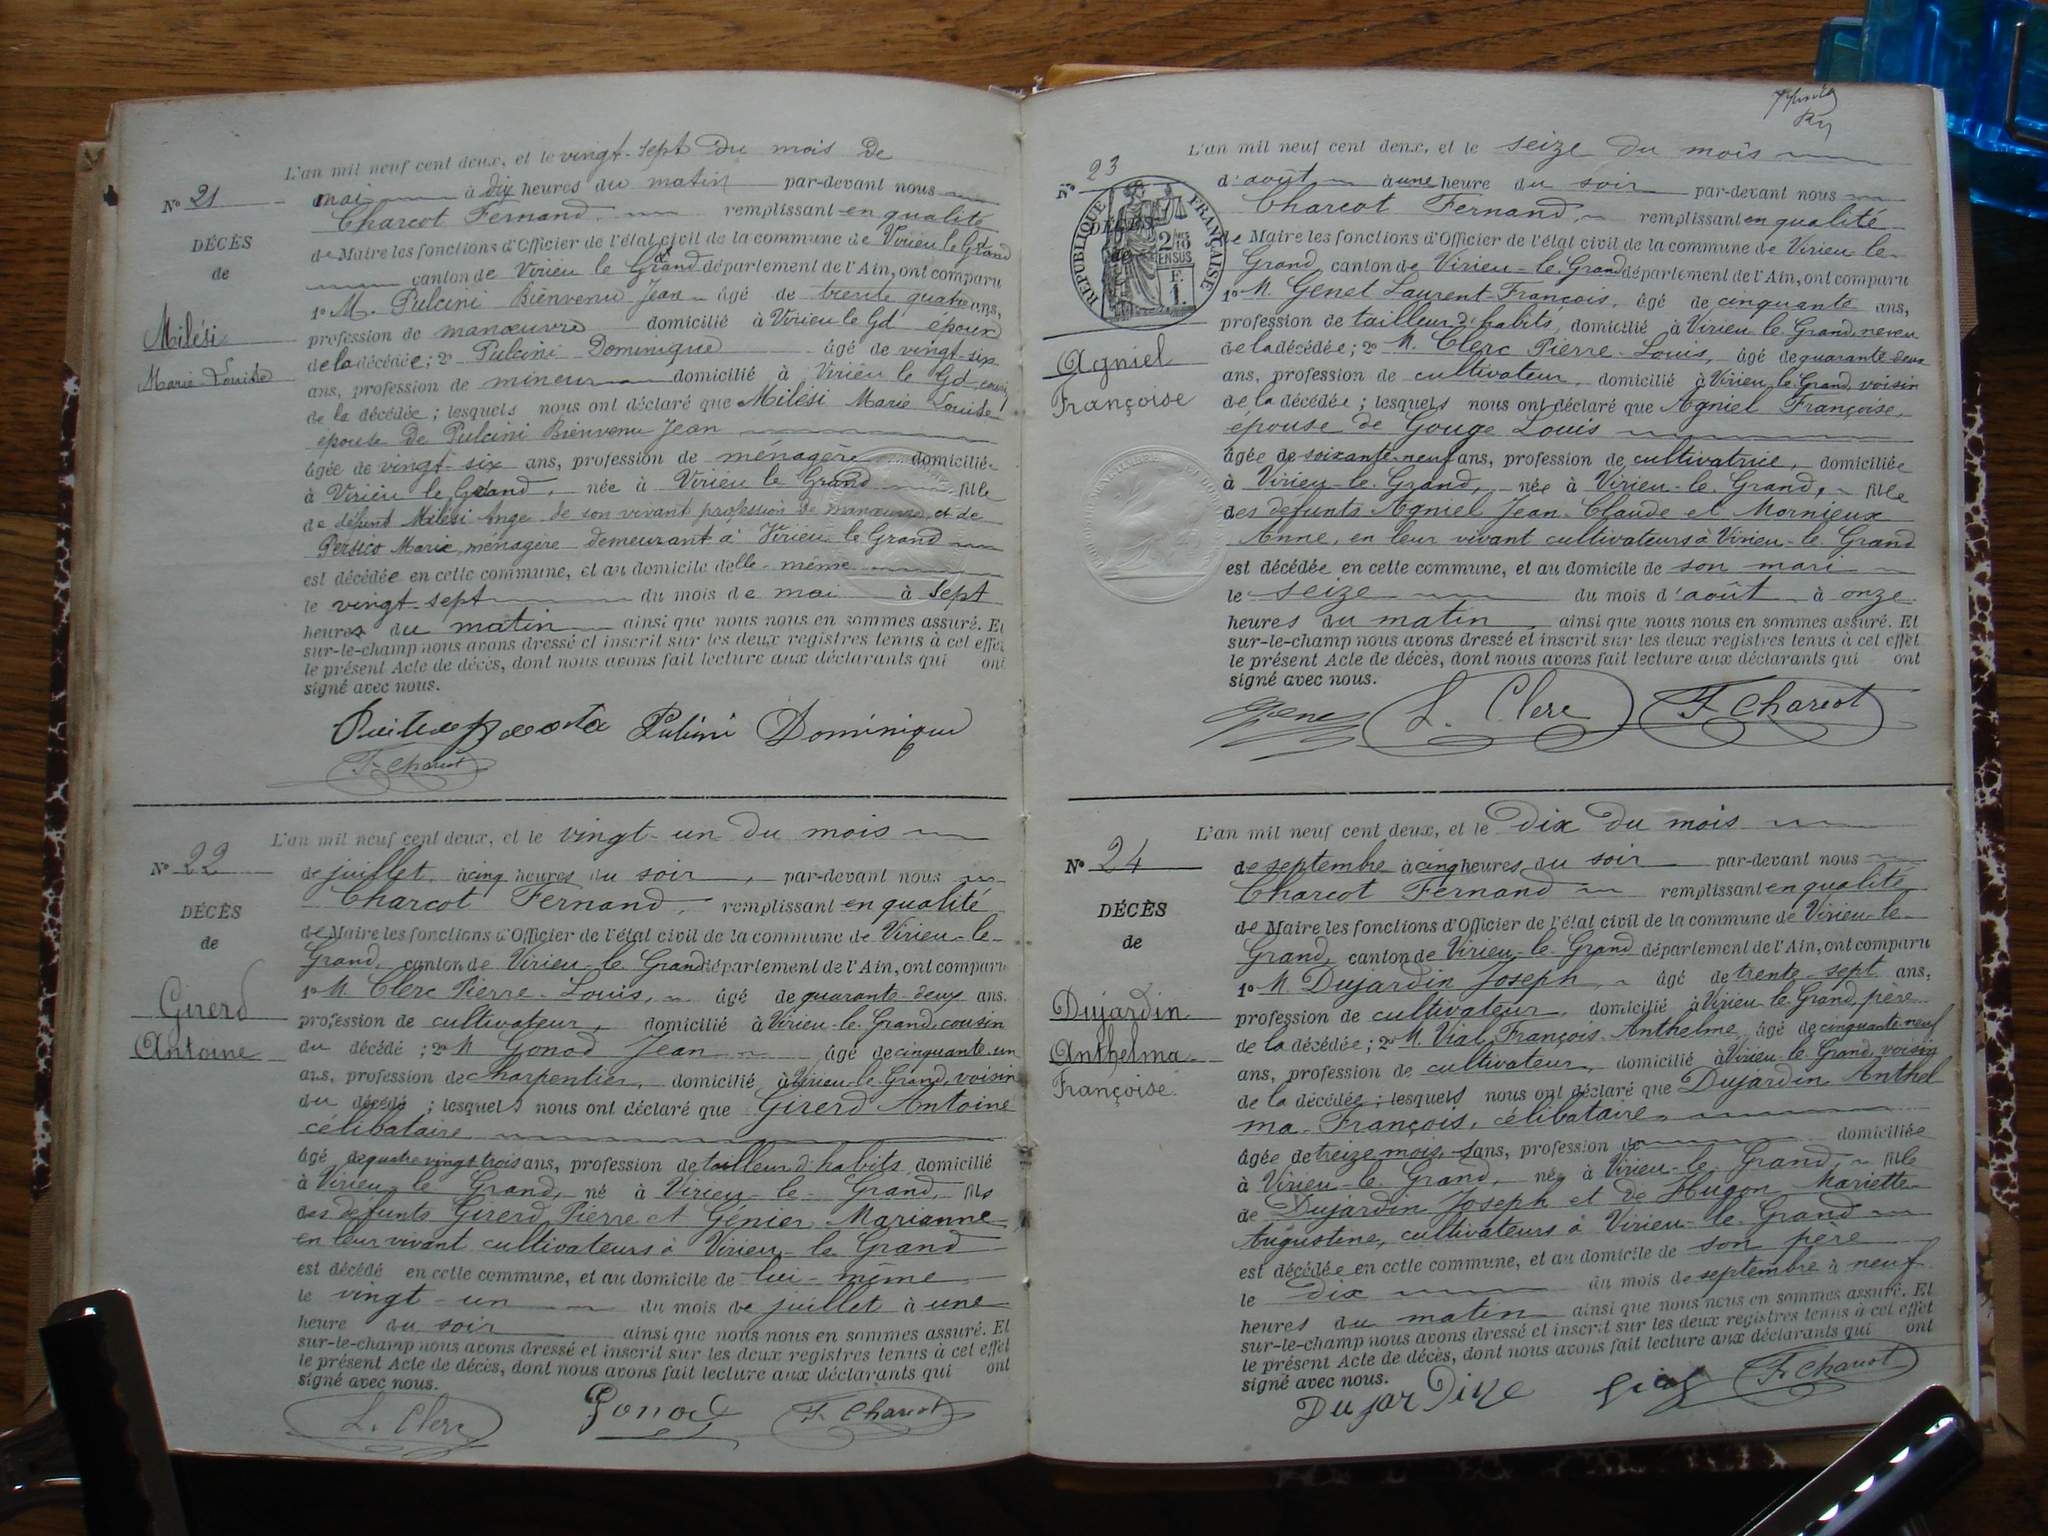 L'an mil neuf cent deux, et le vingt-sept du mois de
N° 21 mai à dix heures du matin par-devant nous
Charcot Fernand, remplissant en qualité
DÉCÈS de Maire les fonctions d'Officier de l'état civil de la commune de Virieu le Grand
de canton de Virieu le Grand département de l'Ain, ont comparu
1° M. Pulcini Bienvenu Jean âgé de trente quatre ans,
Milési profession de manœuvre domicilié à Virieu le Gd époux
de la décédée; 2° Pulcini Dominique âgé de vingt-six
Marie Louise ans, profession de mineur domicilié à Virieu le Gd cousin
de la décédée; lesquels nous ont déclaré que Milési Marie Louise
épouse de Pulcini Bienvenu Jean
âgée de vingt-six ans, profession de ménagère domiciliée
à Virieu le Grand, née à Virieu le Grand fille
de défunt Milési Ange de son vivant profession de manœuvre, et de
Persico Marie, ménagère demeurant à Virieu le Grand
est décédée en cette commune, et au domicile d'elle-même
le vingt-sept du mois de mai à sept
heures du matin ainsi que nous nous en sommes assuré. Et
sur-le-champ nous avons dressé et inscrit sur les deux registres tenus à cet effet
le présent Acte de décès, dont nous avons fait lecture aux déclarants qui ont
signé avec nous.
Pulcini Dominique
F. Charcot
L'an mil neuf cent deux, et le vingt-un du mois
N° 22 de juillet, à cinq heures du soir, par-devant nous
Charcot Fernand, remplissant en qualité
DÉCÈS de Maire les fonctions d'Officier de l'état civil de la commune de Virieu-le-
de Grand, canton de Virieu-le-Grand département de l'Ain, ont comparu
1° M. Clerc Pierre-Louis, âgé de quarante-deux ans,
Girerd profession de cultivateur, domicilié à Virieu-le-Grand, cousin
Antoine du décédé; 2° M. Gonod Jean âgé de cinquante-un
ans, profession de charpentier, domicilié à Virieu-le-Grand, voisin
du décédé; lesquels nous ont déclaré que Girerd Antoine
célibataire
âgé de quatre vingt trois ans, profession de tailleur d'habits, domicilié
à Virieu-le-Grand, né à Virieu-le-Grand, fils
des défunts Girerd Pierre et Génier Marianne,
en leur vivant cultivateurs à Virieu-le-Grand
est décédé en cette commune, et au domicile de lui-même
le vingt-un du mois de juillet à une
heure du soir ainsi que nous nous en sommes assuré. Et
sur-le-champ nous avons dressé et inscrit sur les deux registres tenus à cet effet
le présent Acte de décès, dont nous avons fait lecture aux déclarants qui ont
signé avec nous.
L. Clerc Gonod F. Charcot
L'an mil neuf cent deux, et le seize du mois
N° 23 d'août à une heure du soir par-devant nous
Charcot Fernand, remplissant en qualité
DÉCÈS de Maire les fonctions d'Officier de l'état civil de la commune de Virieu-le-
de Grand, canton de Virieu-le-Grand département de l'Ain, ont comparu
RÉPUBLIQUE FRANÇAISE
2/10 EN SUS
F.
1.
1° M. Genet Laurent-François, âgé de cinquante ans,
profession de tailleur d'habits, domicilié à Virieu-le-Grand, neveu
Agniel de la décédée; 2° M. Clerc Pierre-Louis, âgé de quarante-deux
ans, profession de cultivateur, domicilié à Virieu-le-Grand, voisin
Françoise de la décédée; lesquels nous ont déclaré que Agniel Françoise,
épouse de Gouge Louis
âgée de soixante-neuf ans, profession de cultivatrice, domiciliée
à Virieu-le-Grand, née à Virieu-le-Grand, fille
des défunts Agniel Jean-Claude et Mornieux
Anne, en leur vivant cultivateurs à Virieu-le-Grand
est décédée en cette commune, et au domicile de son mari
le seize du mois d'août à onze
heures du matin, ainsi que nous nous en sommes assuré. Et
sur-le-champ nous avons dressé et inscrit sur les deux registres tenus à cet effet
le présent Acte de décès, dont nous avons fait lecture aux déclarants qui ont
signé avec nous.
Genet L. Clerc F. Charcot
L'an mil neuf cent deux, et le dix du mois
N° 24 de septembre à cinq heures du soir par-devant nous
Charcot Fernand remplissant en qualité
DÉCÈS de Maire les fonctions d'Officier de l'état civil de la commune de Virieu-le-
de Grand, canton de Virieu-le-Grand département de l'Ain, ont comparu
1° M. Dujardin Joseph, âgé de trente-sept ans,
Dujardin profession de cultivateur, domicilié à Virieu-le-Grand, père
Anthelma de la décédée; 2° M. Vial François-Anthelme, âgé de cinquante-neuf
Françoise ans, profession de cultivateur, domicilié à Virieu-le-Grand, voisin
de la décédée; lesquels nous ont déclaré que Dujardin Anthel
ma-François, célibataire,
âgée de treize mois ans, profession de domiciliée
à Virieu-le-Grand, née à Virieu-le-Grand, fille
de Dujardin Joseph et de Hugon Mariette
Augustine, cultivateurs à Virieu-le-Grand
est décédée en cette commune, et au domicile de son père
le dix du mois de septembre à neuf
heures du matin ainsi que nous nous en sommes assuré. Et
sur-le-champ nous avons dressé et inscrit sur les deux registres tenus à cet effet
le présent Acte de décès, dont nous avons fait lecture aux déclarants qui ont
signé avec nous.
Dujardin Vial F. Charcot